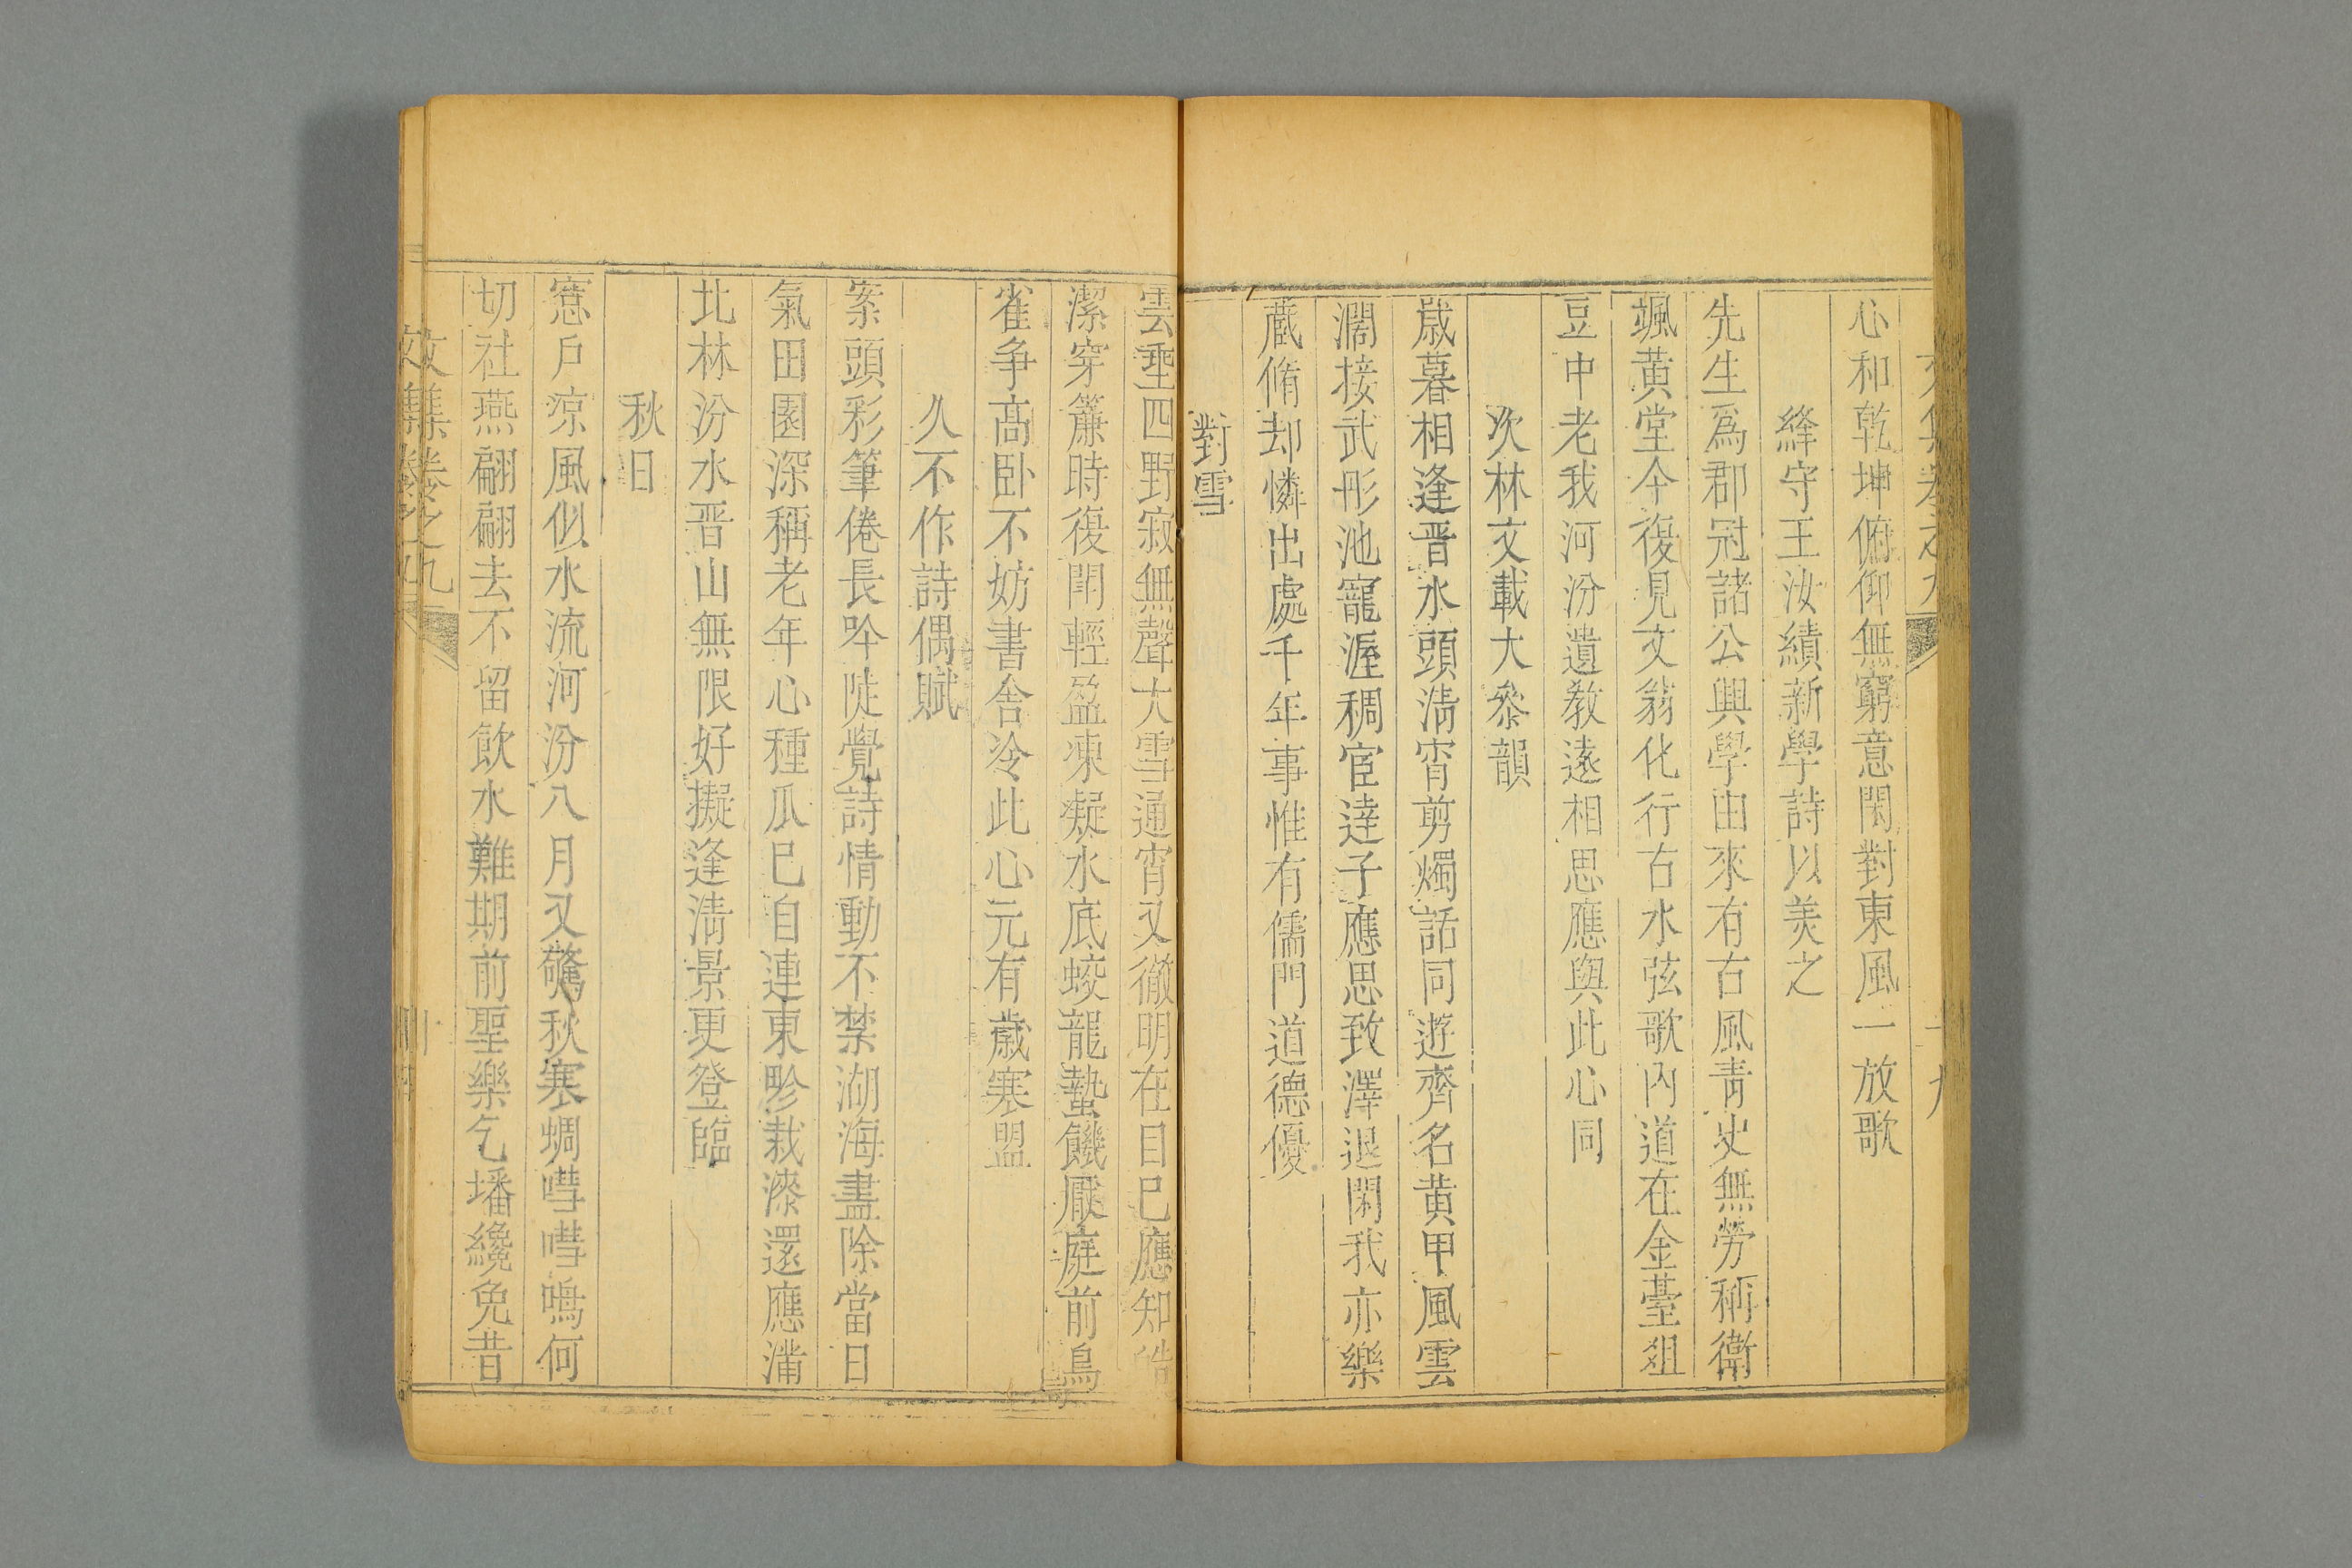 心和乾坤俯仰無窮意閑對東風一放歌
絳守王汝績新學詩以美之
先生爲郡冠諸公興學由來有古風青史無勞稱衛
颯黄堂今復見文翁化行古水弦歌內道在金臺俎
豆中老我河汾遺教遠相思應與此心同
次林文載大叅韻
歲暮相逢晋水頭淸宵剪燭話同遊齊名黄甲風雲
濶接武彤池寵渥稠宦逹子應思致澤退閑我亦樂
藏脩却憐出處千年事惟有儒門道德優
對雪
雲埀四野寂無聲大雪通宵又徹明在目已應知皓
潔穿簾時復閗輕盈凍凝水底蛟龍蟄饑厭庭前鳥
雀争高卧不妨書舍冷此心元有歲寒盟
久不作詩偶賦
案頭彩筆倦長吟陡覺詩情動不禁湖海盡除當日
氣田園深稱老年心種瓜已自連東畛栽漆還應滿
北林汾水晋山無限好擬逢淸景更登臨
秋日
窓戶凉風似水流河汾八月又驚秋寒蜩嘒嘒鳴何
切社燕翩翩去不留飲水難期前聖樂乞墦纔免昔
文集卷之九